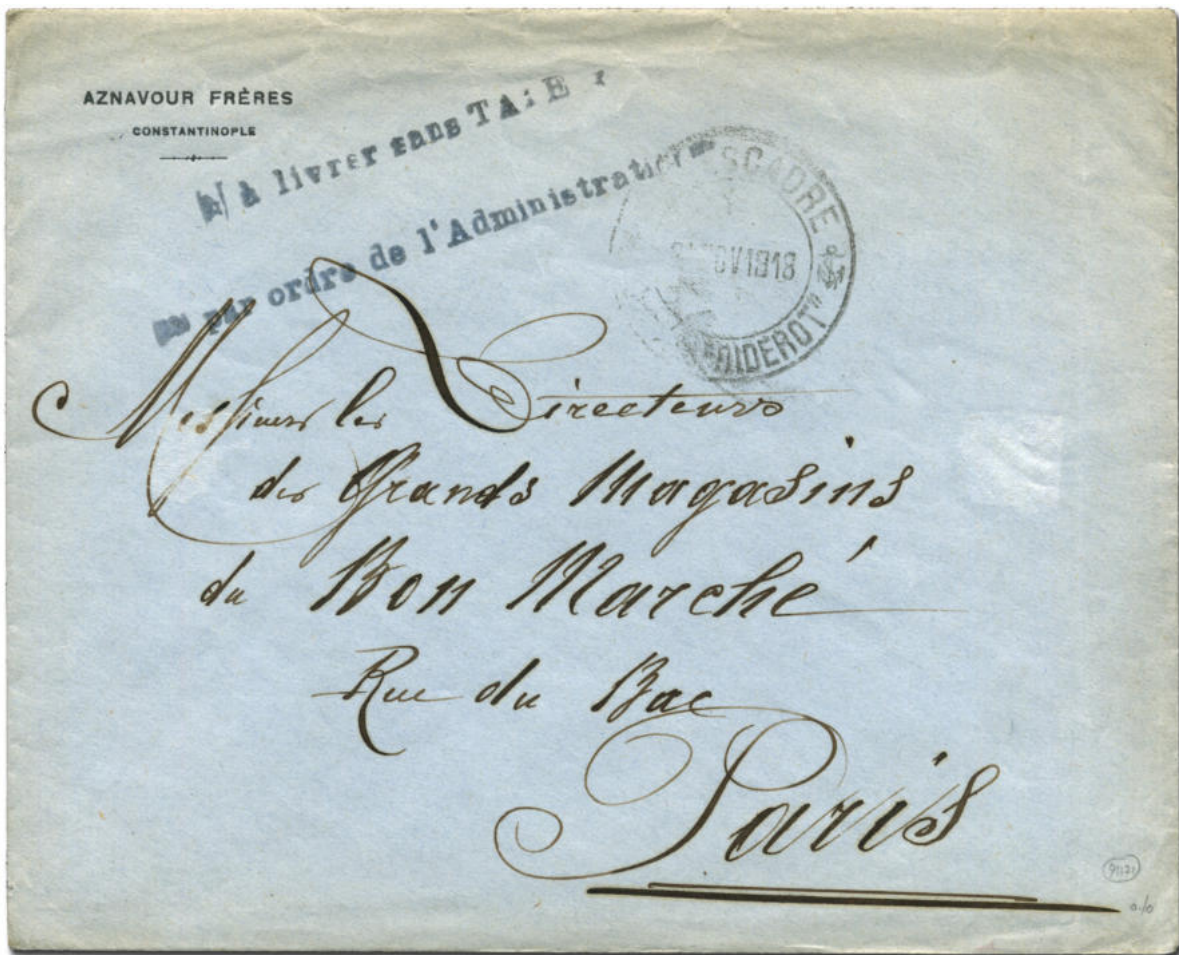 AZNAVOUR FRÈRES
CONSTANTINOPLE
à livrer sans TAXE
par ordre de l'Administration
ESCADRE
NOV 1918
"DIDEROT"
Messieurs les Directeurs
des Grands Magasins
du Bon Marché
Rue du Bac
Paris
91171